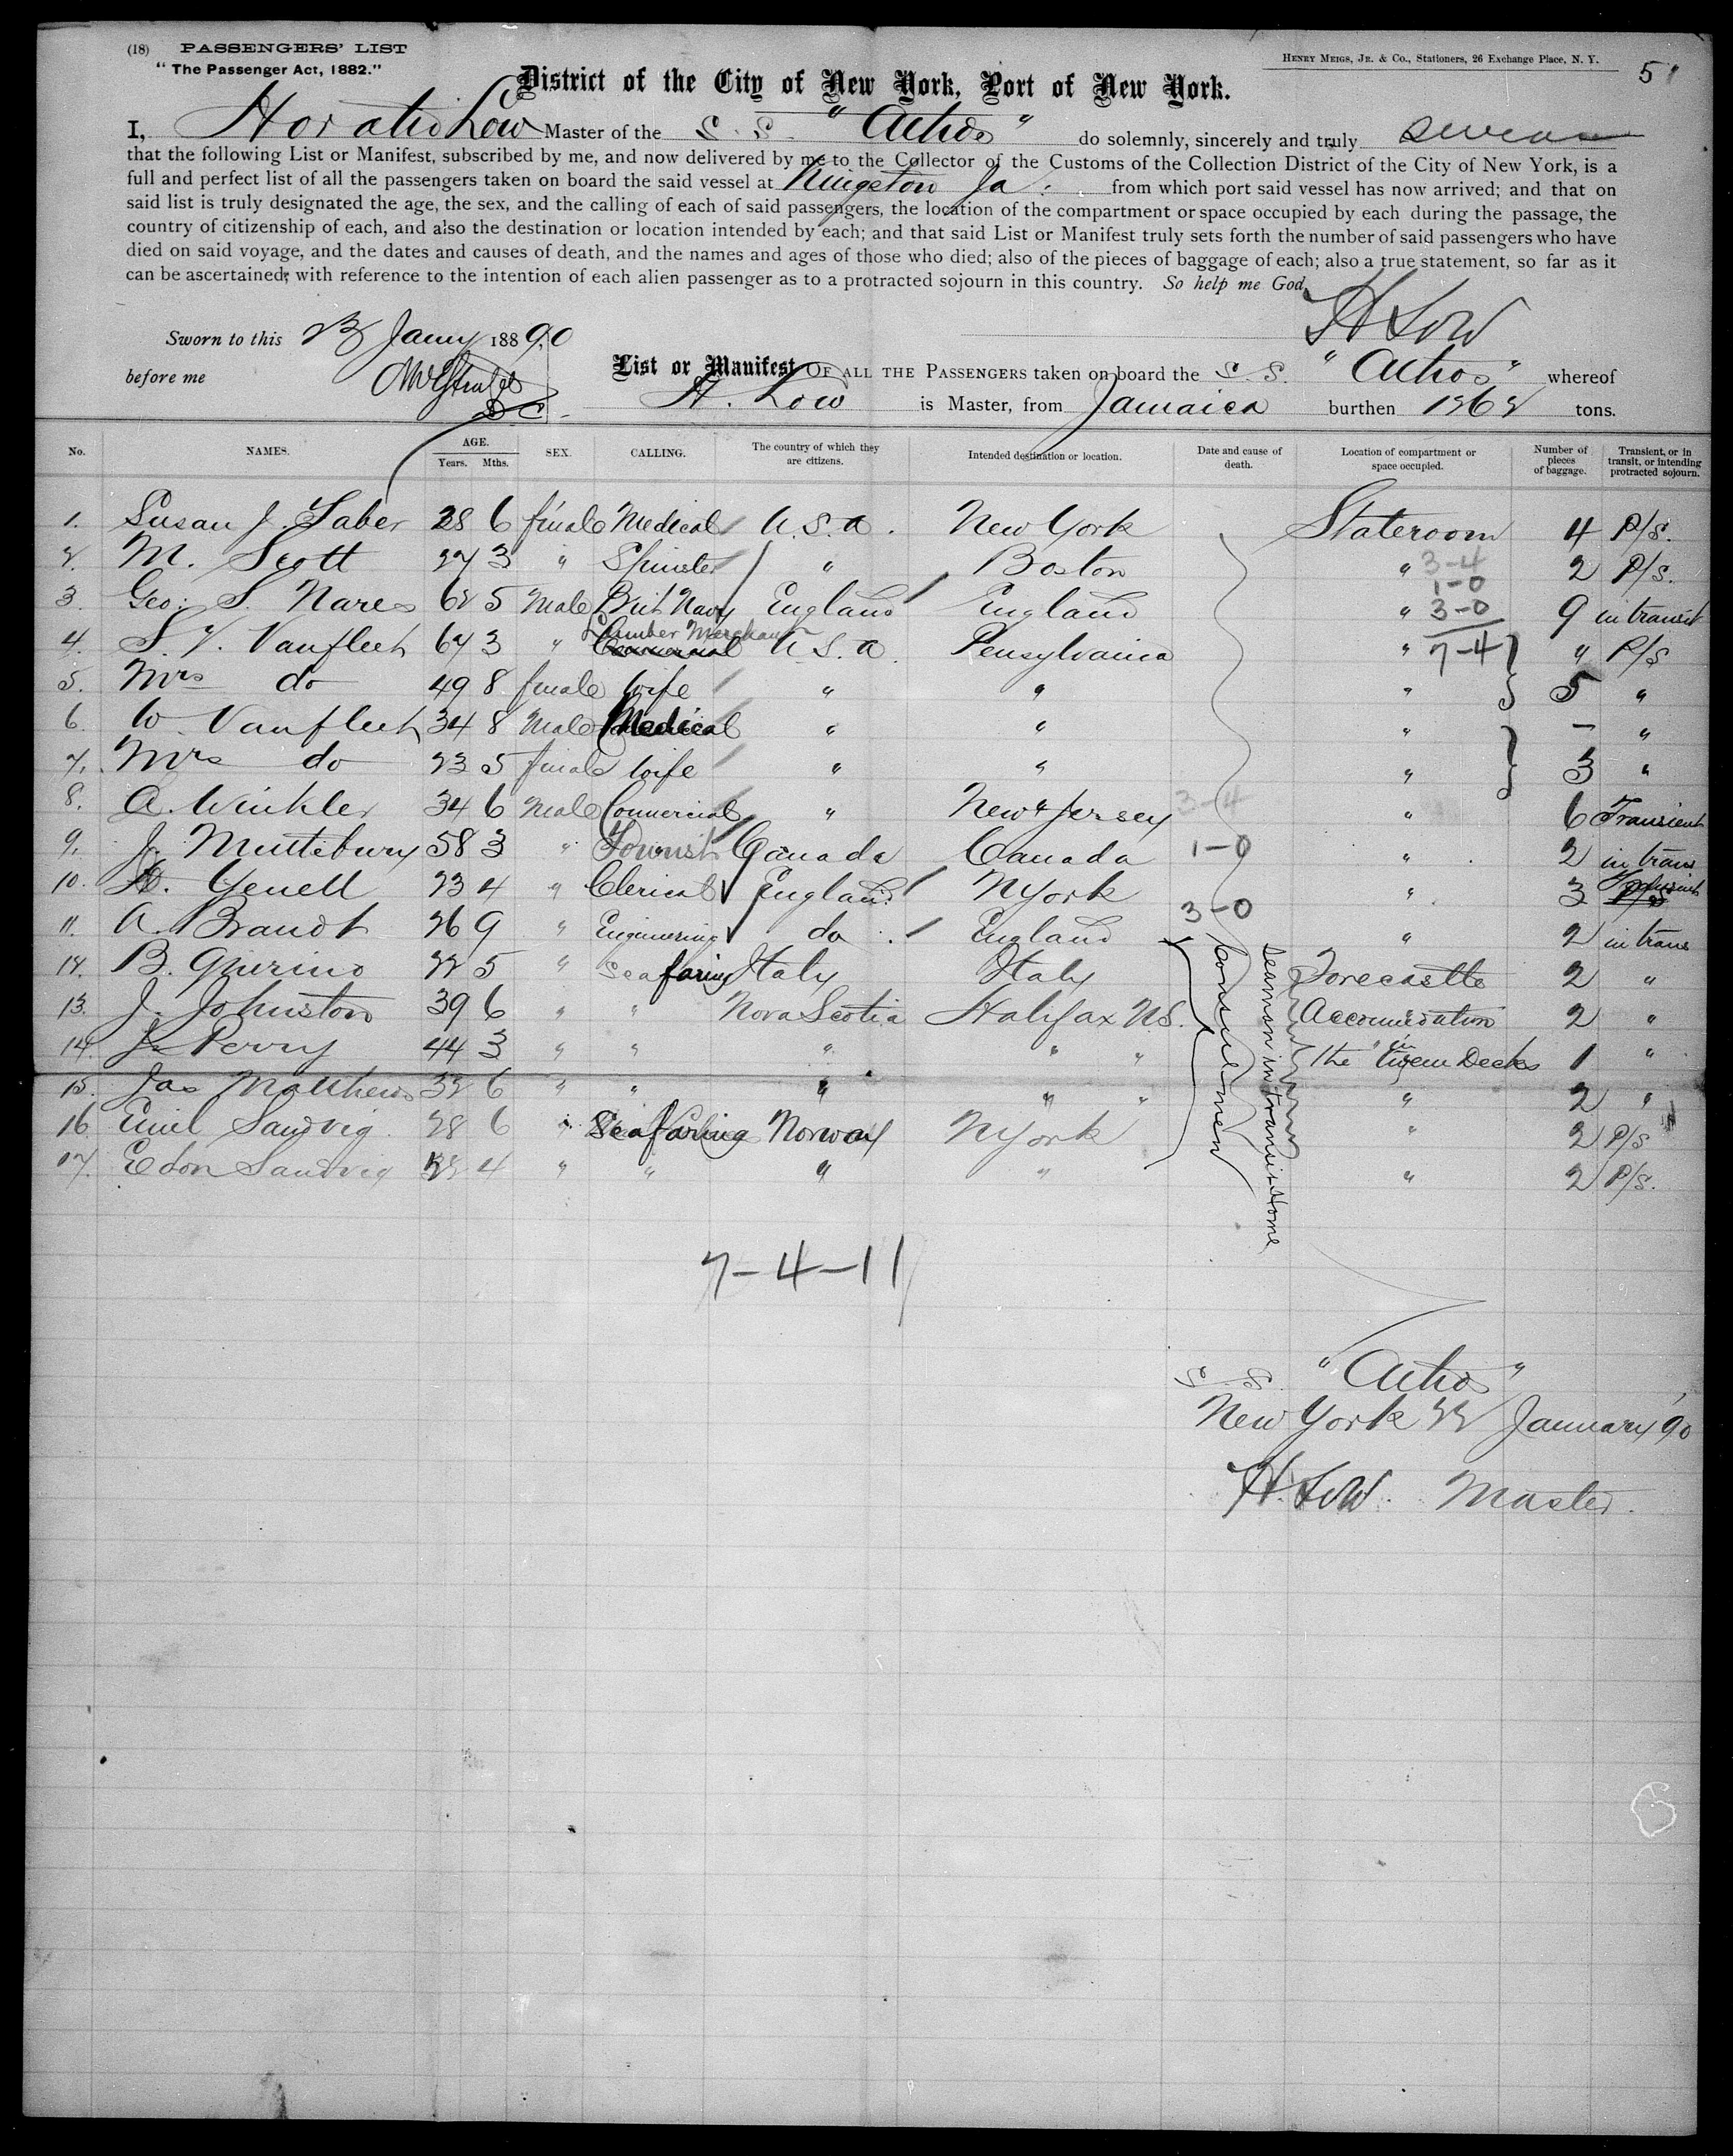 (18) PASSENGERS' LIST
"The Passenger Act, 1882."
HENRY MEIGS, JR. & CO., Stationers, 26 Exchange Place, N. Y.
5
District of the City of New York, Port of New York.
I, Horatio Low Master of the S. S. "Athos" do solemnly, sincerely and truly swear
that the following List or Manifest, subscribed by me, and now delivered by me to the Collector of the Customs of the Collection District of the City of New York, is a
full and perfect list of all the passengers taken on board the said vessel at Kingston Ja. from which port said vessel has now arrived; and that on
said list is truly designated the age, the sex, and the calling of each of said passengers, the location of the compartment or space occupied by each during the passage, the
country of citizenship of each, and also the destination or location intended by each; and that said List or Manifest truly sets forth the number of said passengers who have
died on said voyage, and the dates and causes of death, and the names and ages of those who died; also of the pieces of baggage of each; also a true statement, so far as it
can be ascertained, with reference to the intention of each alien passenger as to a protracted sojourn in this country. So help me God.
H Low
Sworn to this 23 Jany 188 90
before me
D C.
List or Manifest OF ALL THE PASSENGERS taken on board the S. S. "Athos" whereof
H. Low is Master, from Jamaica burthen 1262 tons.
No. NAMES. AGE. Years. Mths. SEX. CALLING. The country of which they are citizens. Intended destination or location. Date and cause of death. Location of compartment or space occupied. Number of pieces of baggage. Transient, or in transit, or intending protracted sojourn.
1. Susan J. Taber 28 6 female Medical U.S.A. New York Stateroom 4 P/S.
2. M. Scott 27 3 " Spinster " Boston " 3-4 2 P/S.
1-0
3. Geo: S. Nares 62 5 Male Brit Navy England England " 3-0 9 in transit
Lumber Merchant
4. S. V. Vanfleet 67 3 " Commercial U.S.A. Pensylvania " 7-4 " P/S
5. Mrs do 49 8 female Wife " " " 5 "
6. W. Vanfleet 34 8 Male Medical " " " - "
7. Mrs do 23 5 female Wife " " " 3 "
8. A. Winkler 34 6 Male Commercial " New Jersey 3-4 " 6 Transient
9. J. Muttebury 58 3 " Tourist Canada Canada 1-0 " 2 in trans
10. H. Yenell 23 4 " Clerical England N York " 3 Transient P/S
3-0
11. A. Brandt 26 9 " Engineering do. England " 2 in trans
12. B. Guerino 22 5 " Seafaring Italy Italy Forecastle 2 "
13. J. Johnston 39 6 " " Nova Scotia Halifax NS. Accomodation 2 "
14. J. Perry 44 3 " " " " " the 'tween Decks 1 "
15. Jas Matthews 32 6 " " " " " " 2 "
16. Emil Sandvig 28 6 " Seafaring Norway N York " 2 P/S
17. Edon Sandvig 4 " " " " " 2 P/S.
Consul men
Seaman in transit Home
7-4-11
S. S. "Athos"
New York 22 January '90
H. Low. Master.